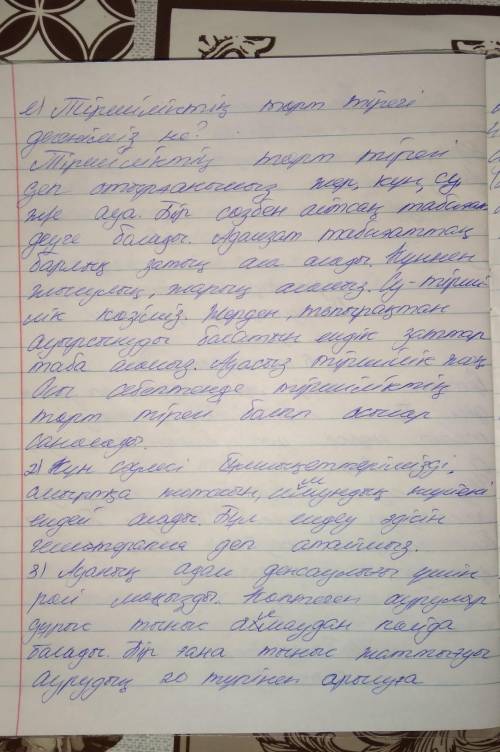 1) Тіршіліктің төрт тірегі
дегеніміз не?
Тіршіліктің төрт тірегі
деп отырғанымыз жер, күн, су
және ауа. Бір сөзбен айтсақ табиғат
деуге болады. Адамзат табиғаттан
барлық затын ала алады. Күннен
жылулық, жарық аламыз. Су-тірші-
лік көзіміз. Жерден, топырақтан
ауырсынуды басатын емдік заттар
таба аламыз. Ауасыз тіршілік жоқ
Осы себептенде тіршіліктің
төрт тірегі болып осылар
саналады.
2) Күн сәулесі бұлшықеттерімізді,
омыртқа жотасын, иммундық жүйені
емдей алады. Бұл емдеу әдісін
гелиотерапия деп атаймыз.
3) Ауаның адам денсаулығы үшін
рөлі маңызды. Көптеген аурулар
дұрыс тыныс алмаудан пайда
болады. Бір ғана тыныс жаттығуы
аурудың 20 түрінен арылуға